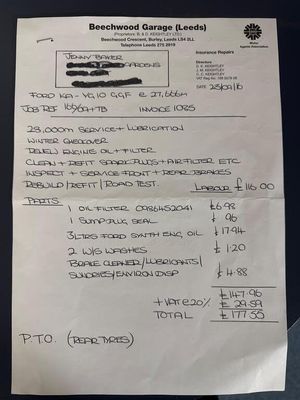 Beechwood Garage (Leeds)
(Proprietors: B. & D. KEIGHTLEY LTD)
Beechwood Crescent, Burley, Leeds LS4 2LL
Telephone Leeds 275 2919
Insurance Repairs
Motor
Agents Association
JENNY BAKER
GARDENS
Directors
D. E. KEIGHTLEY
J. M. KEIGHTLEY
C. C. KEIGHTLEY
VAT Reg No
DATE 23/09/16
FORD KA - YG10 GGF @ 27,666M
JOB REF 165/6A+TB INVOICE 1085
28,000M SERVICE + LUBRICATION
WINTER CHECKOVER
RENEW ENGINE OIL + FILTER
CLEAN + REFIT SPARK PLUGS + AIR FILTER ETC
INSPECT + SERVICE FRONT + REAR BRAKES
REBUILD / REFIT / ROAD TEST. LABOUR £116.00
PARTS
1 OIL FILTER 0986452041 £6.98
1 SUMP PLUG SEAL £ 96
3 LTRS FORD SYNTH ENG OIL £17.94
2 W/S WASHES £1.20
BRAKE CLEANER / LUBRICANTS /
SUNDRIES / ENVIRON DISP £4.88
£147.96
+ VAT @ 20% £29.59
TOTAL £177.55
P.T.O. (REAR TYRES)